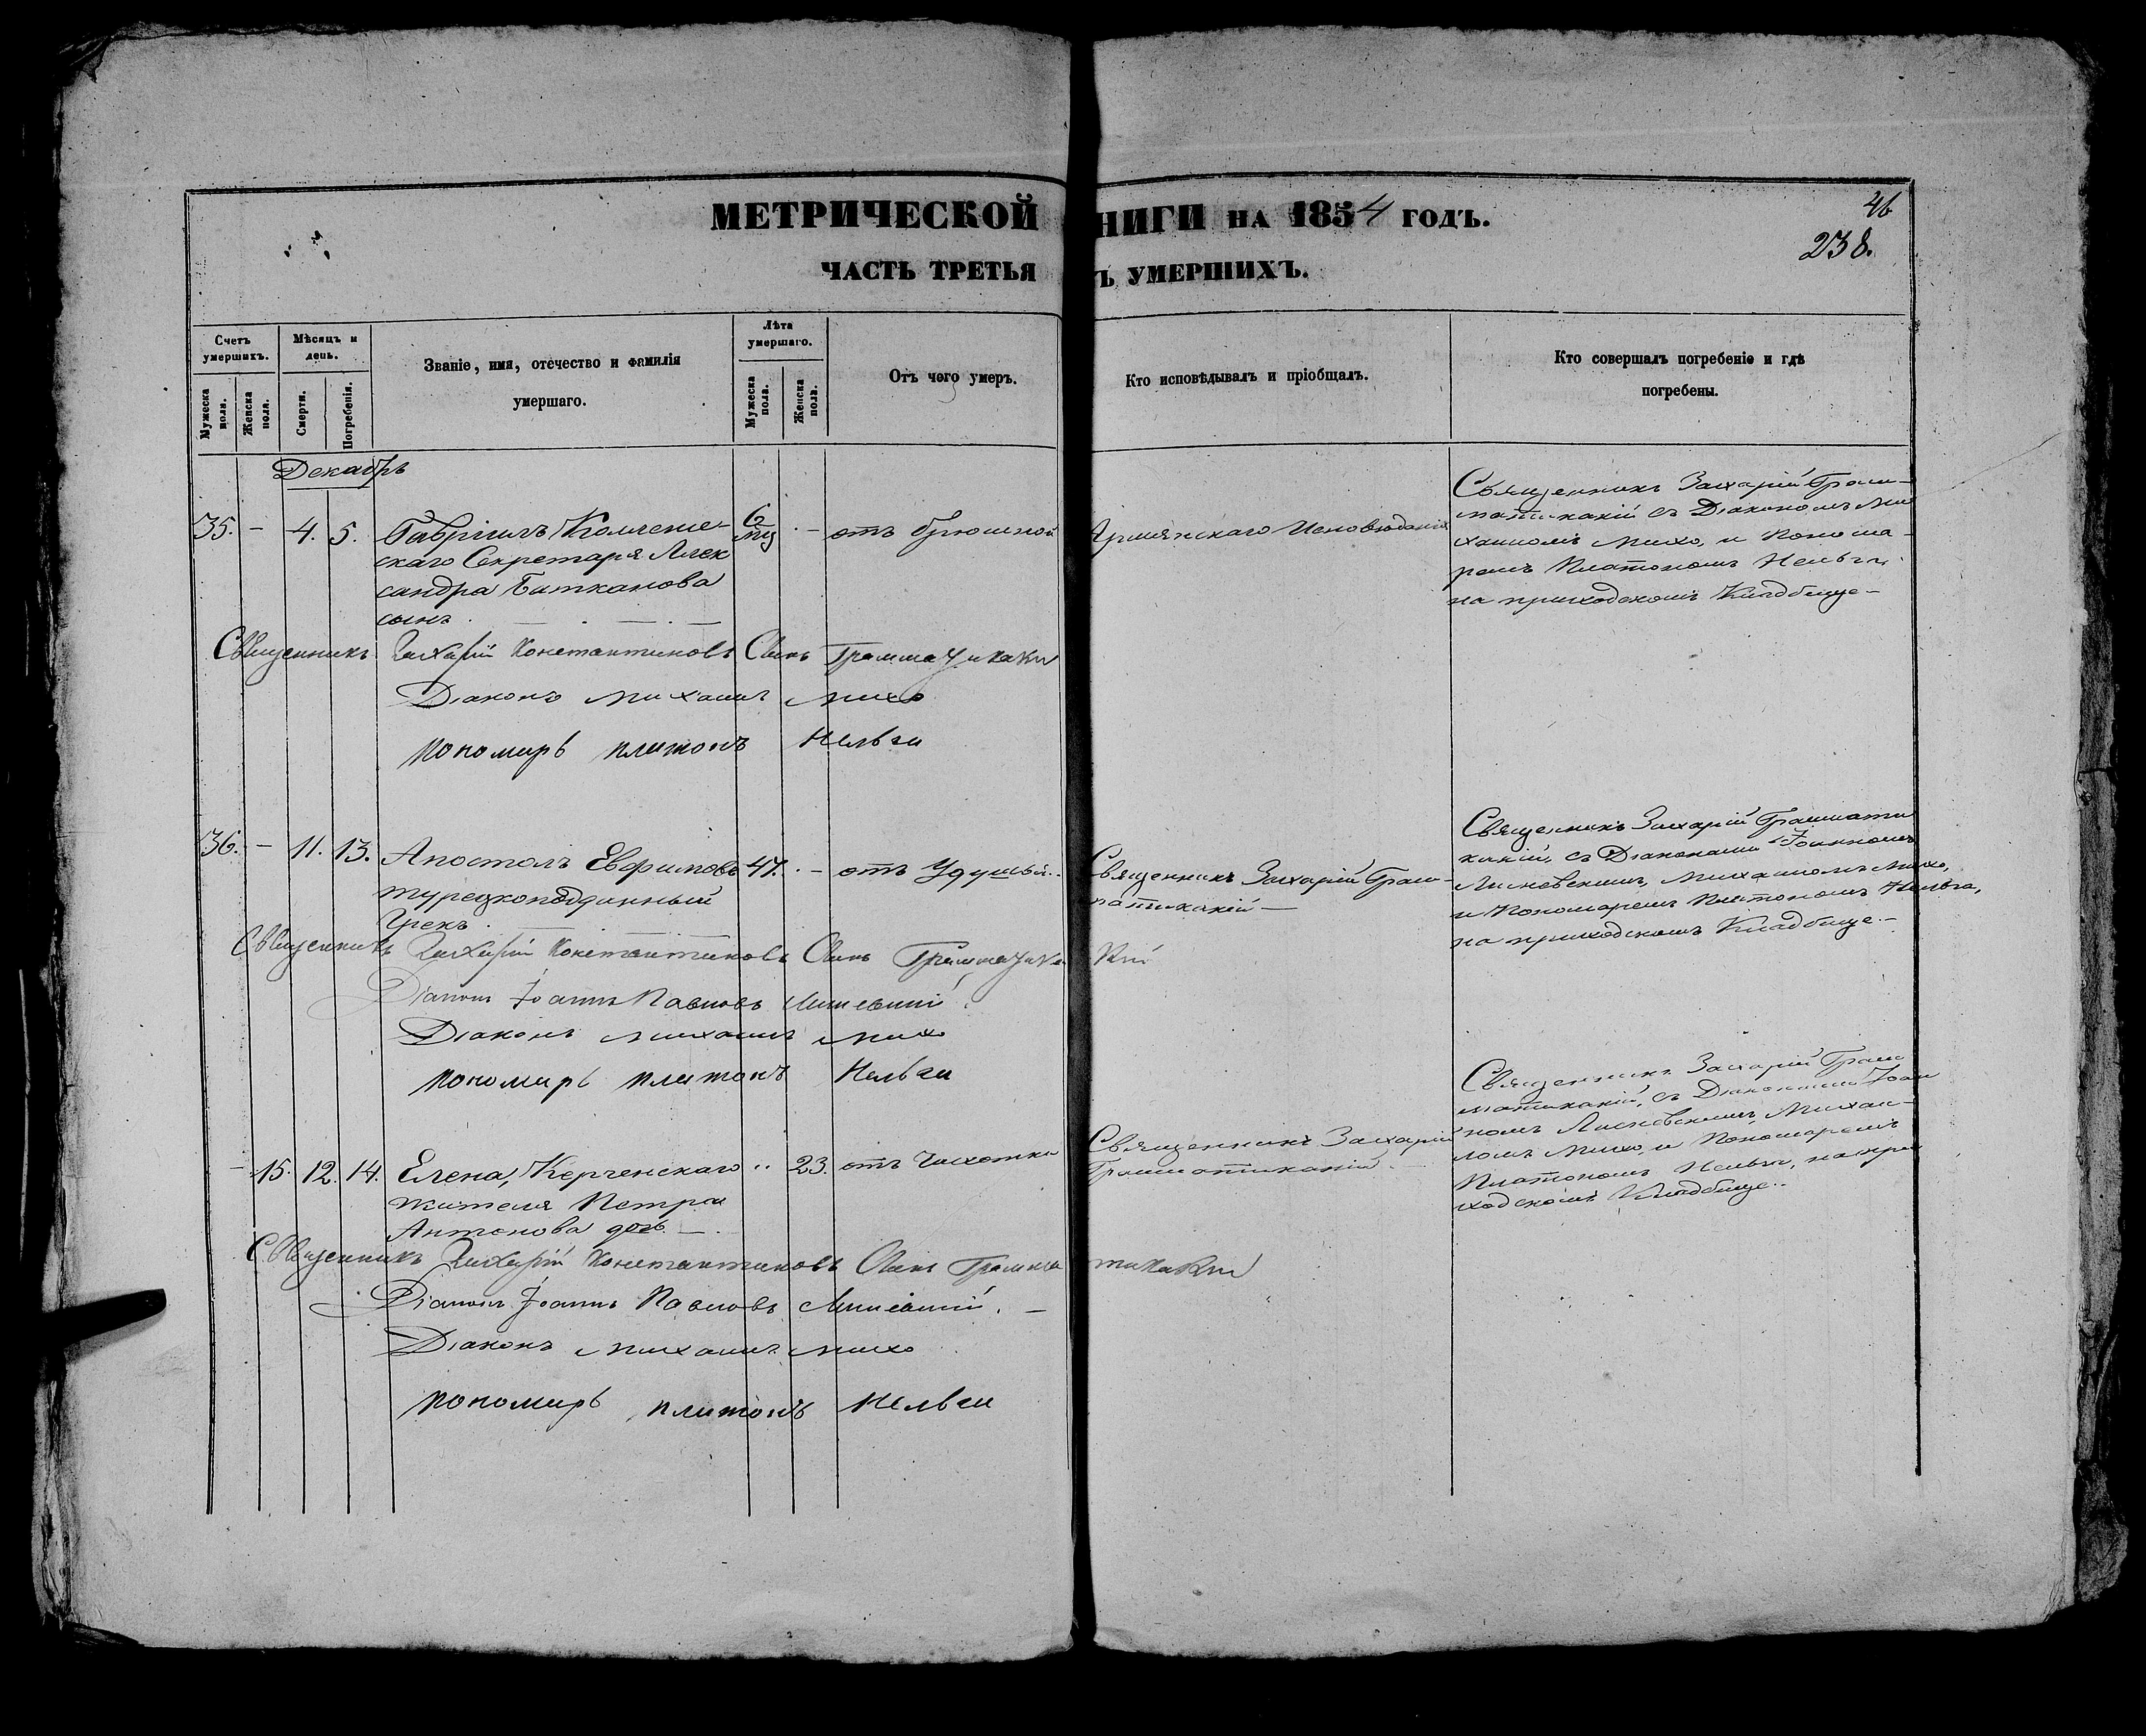 МЕТРИЧЕСКОЙ НИГИ НА 1854 ГОДЪ.
46
238.
ЧАСТЬ ТРЕТЬЯ Ъ УМЕРШИХЪ.
Счетъ умершихъ.
Мѣсяцъ и день.
Званіе, имя, отечество и фамилія
умершаго.
Лѣта умершаго.
Отъ чего умеръ.
Кто исповѣдывалъ и пріобщалъ.
Кто совершалъ погребеніе и гдѣ
погребены.
Мужеска пола.
Женска пола.
Смерти.
Погребенія.
Мужеска пола.
Женска пола.
Декабрь
35. - 4. 5. Гавріилъ
скаго Секретаря Алек
сандра Битканова
сынъ.
6 мц
- отъ брюшной
Армянскаго Исповѣданія
Священникъ Захарій Грам-
матикакій съ Діакономъ Ми
хаиломъ Михо, и Понома-
ремъ Платономъ Нельга.
на приходскомъ Кладбище-
Священникъ Захарій Константиновъ Сынъ Грамматикаки
Діаконъ Михаилъ Михо
Пономарь Платонъ Нельга
36. - 11. 13. Апостолъ Евфимовъ
турецкоподданный
Грекъ.
47. - отъ Удушья.
Священникъ Захарій Грам-
матикакій-
Священникъ Захарій Граммати
какій, съ Діаконами Іоанномъ
Лисневскимъ, Михаиломъ Михо,
и Пономаремъ Платономъ Нельга,
на приходскомъ Кладбище.-
Священникъ Захарій Константиновъ Сынъ Грамматикакій
Діаконъ Іоаннъ Павловъ
Діаконъ Михаилъ Михо
Пономарь Платонъ Нельга
- 15. 12. 14. Елена, Керченскаго
жителя Петра
Антонова дочь.
23. отъ Чахотки
Священникъ Захарій
Грамматикакій.
Священникъ Захарій Грам
матикакій, съ Діаконами Іоан
номъ Лисневскимъ, Михаи-
ломъ Михо, и Пономаремъ
Платономъ Нельга, на при
ходскомъ Кладбище.
Священникъ Захарій Константиновъ Сынъ Грамматикакій
Діаконъ Іоаннъ Павловъ
Діаконъ Михаилъ Михо
Пономарь Платонъ Нельга